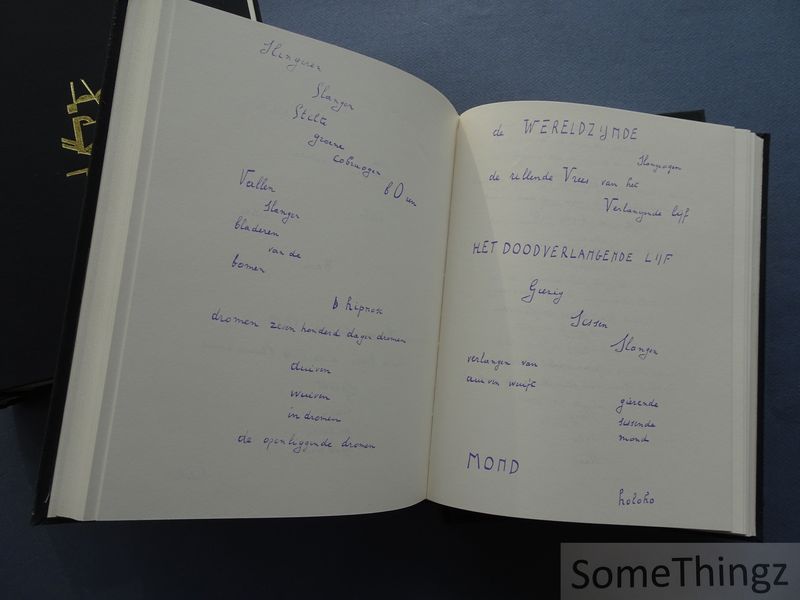 Slingeren
Slangen
Stilte
groene
cobraogen
bOven
Vallen
slangen
bladeren
van de
bomen
hipnose
dromen zeven honderd dagen dromen
duiven
wuiven
in dromen
de openliggende dromen
de WERELDZIJNDE
Slangeogen
de rillende Vrees van het
Verlangende lijf
HET DOODVERLANGENDE LIJF
Gierig
Sissen
Slangen
verlangen van
gierende
sissende
mond
MOND
holoho
SomeThingz